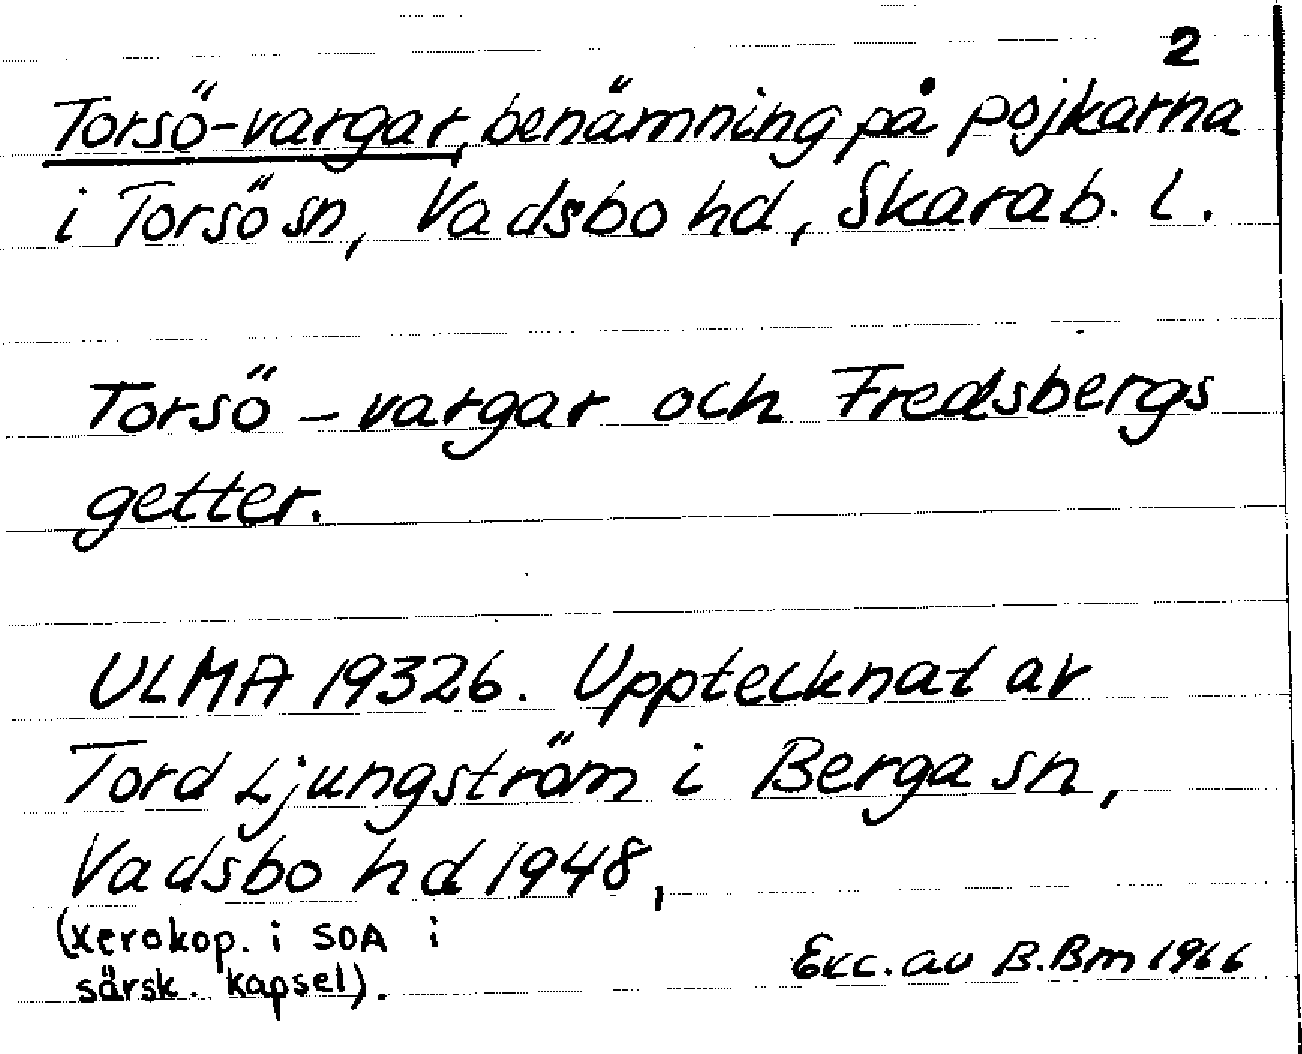 2
Torsö-vargar, benämning på pojkarna
i Torsö sn, Vadsbo hd, Skarab. l.
Torsö - vargar och Fredsbergs
getter.
ULMA 19326. Upptecknat av
Tord Ljungström i Berga sn,
Vadsbo hd 1948,
(xerokop. i SOA i
särsk. kapsel).
Exc. av B.Bm 1966